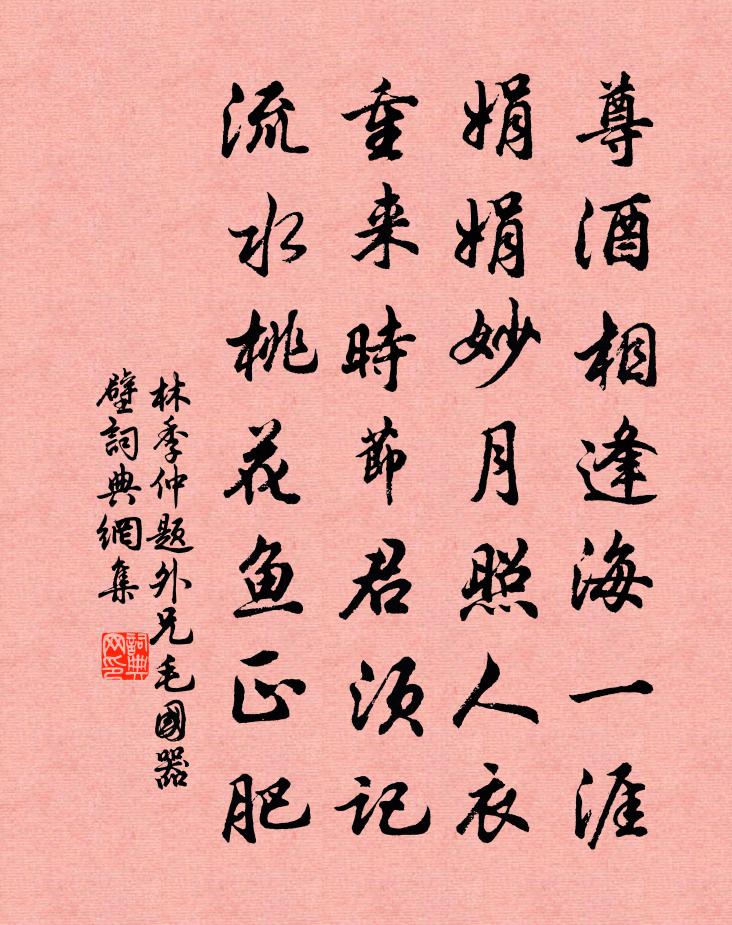 尊酒相逢海一涯
娟娟妙月照人衣
重来時節君须记
流水桃花鱼正肥
林季仲题外兄毛國器
壁詞典網集
詞典
网印